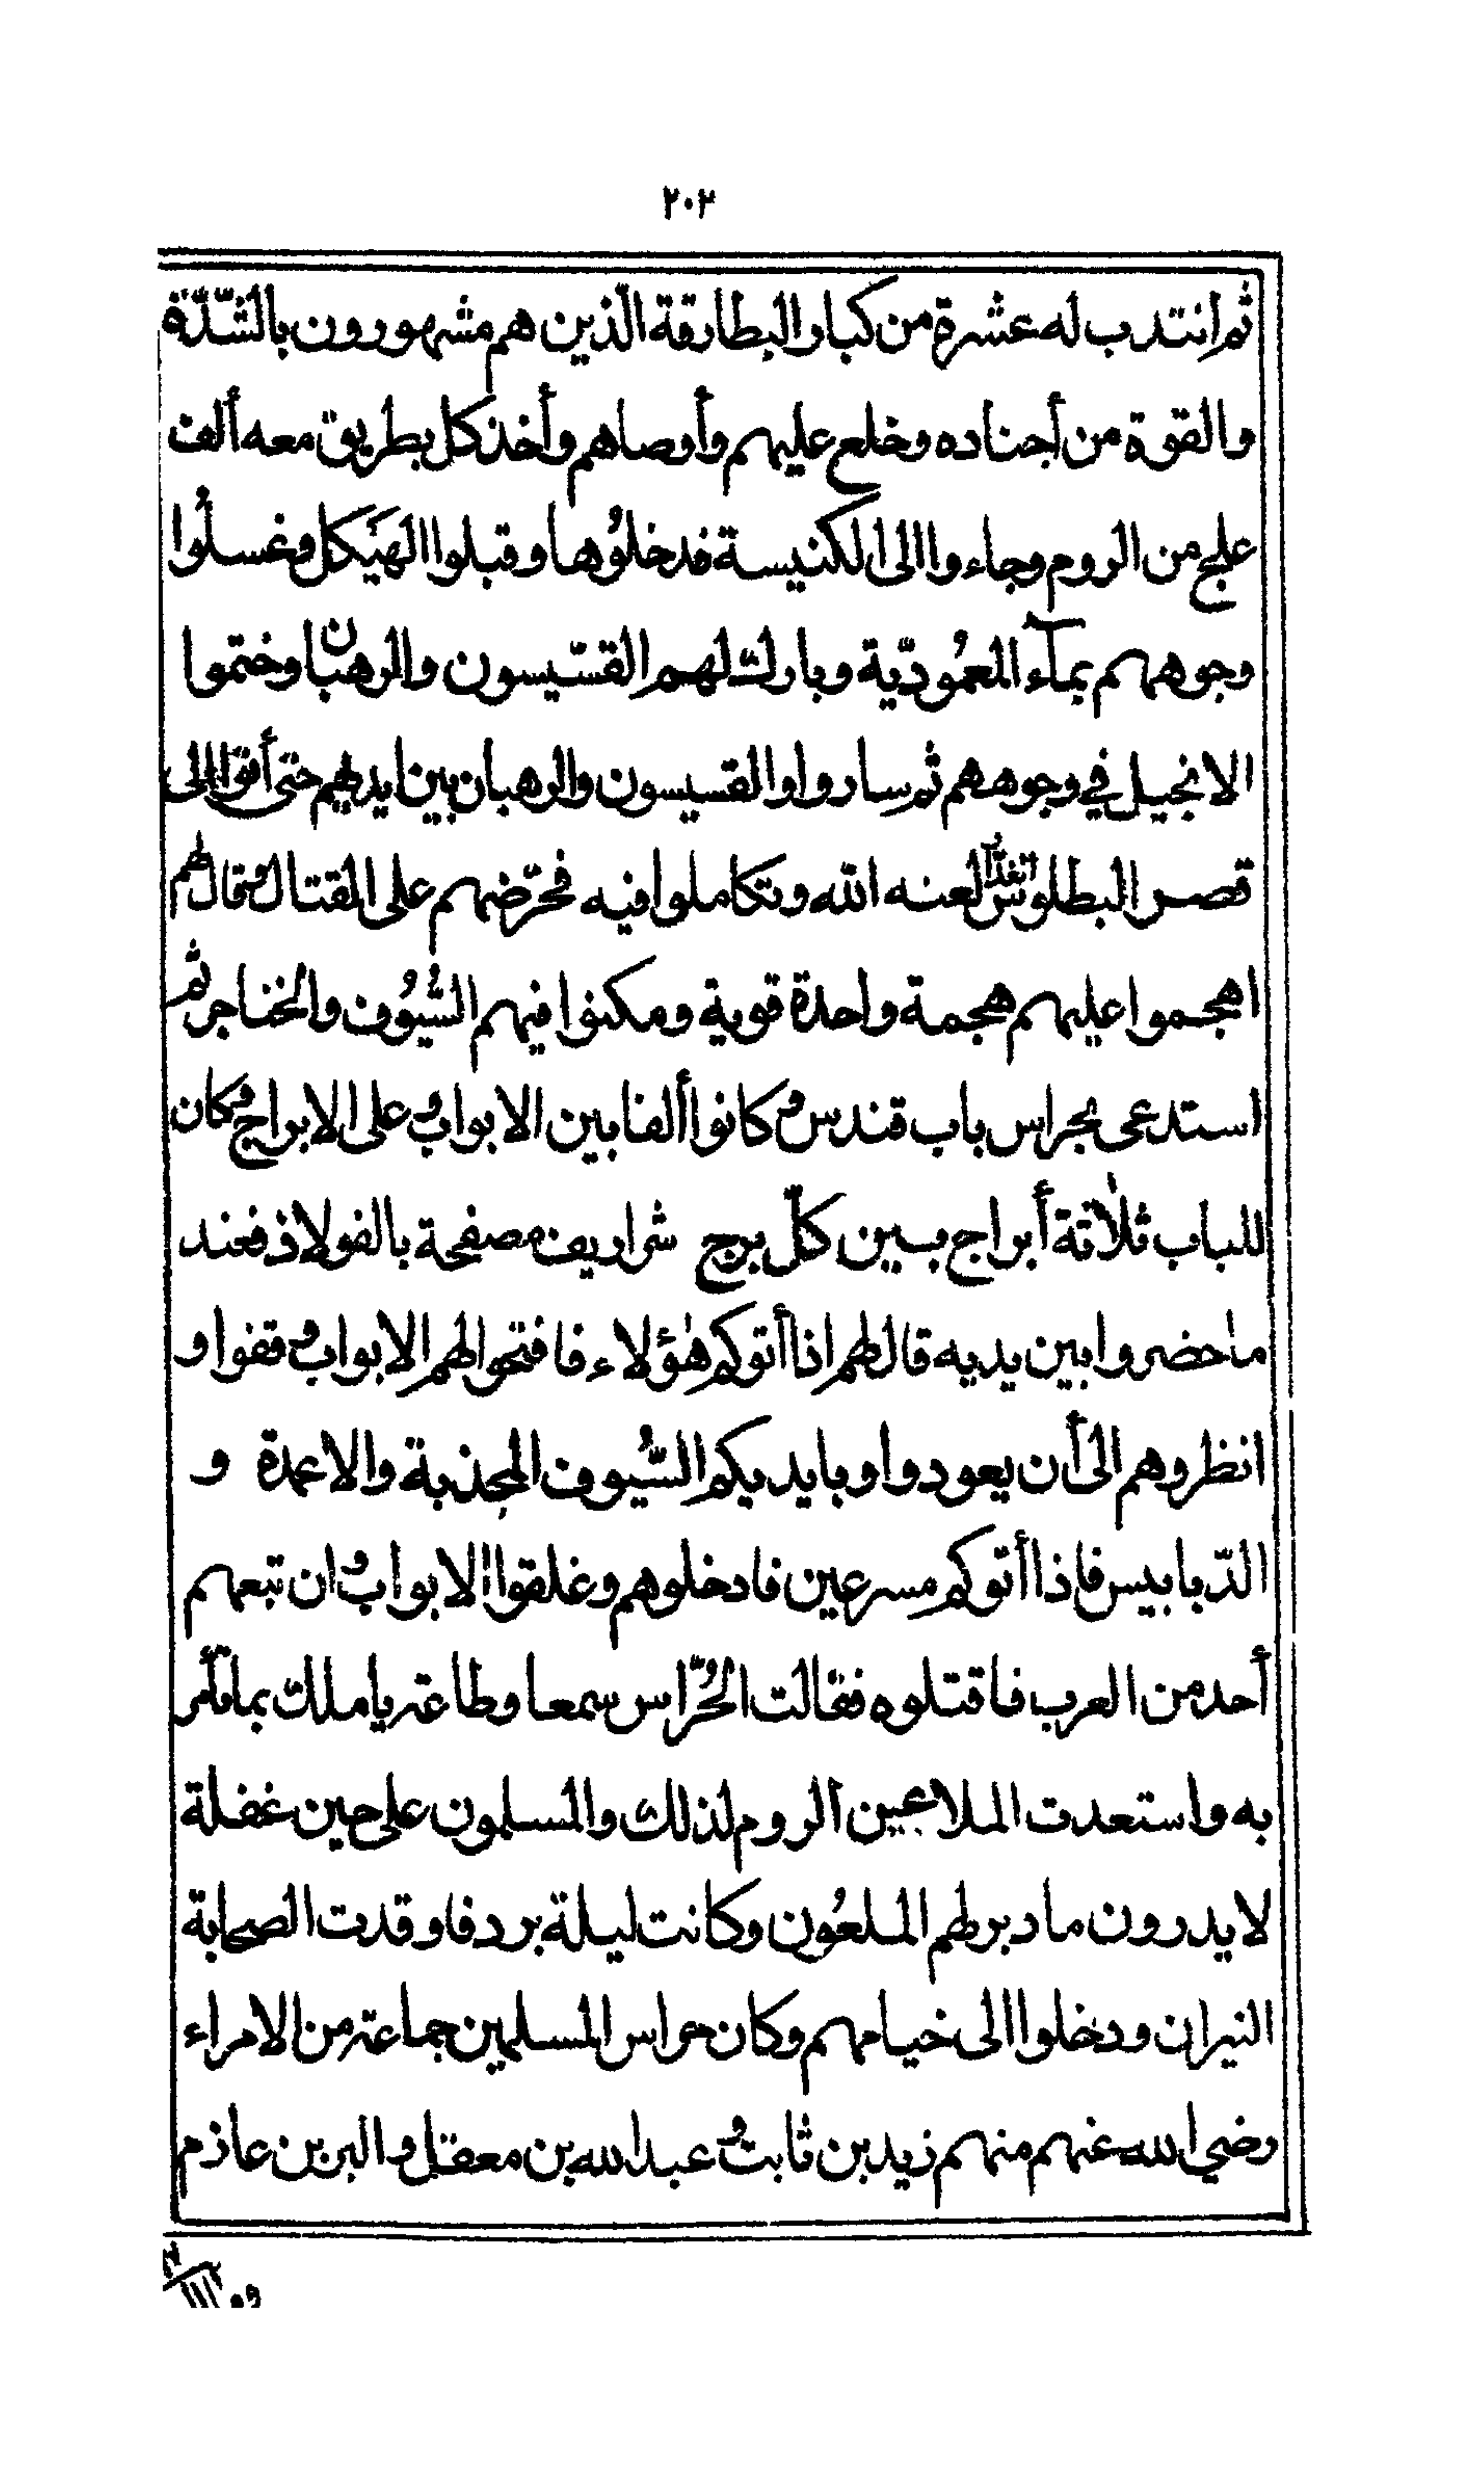 ٢٠٢
ثم انتدب له عشرة من كبار البطارقة الّذين هم مشهورون بالشّدّة
والقوة من أجناده وخلع عليهم وأوصاهم وأخذ كل بطريق معه ألف
علج من الروم وجاءوا الى الكنيسة فدخلوُها وقبلوا الهيَكل وغسلُوا
وجوههم بمآء المعمُوديّة وبارك لهم القسّيسون والرهبان وختموا
الانجيل في وجوههم ثم ساروا والقسيسون والرهبان بين ايديهم حتى أتوا الى
قصر البطلوس لعنه الله وتكاملوا فيه فحرّضهم على القتال وقال لهم
اهجموا عليهم هجمة واحدة قوية ومكنوا فيهم السُّيُوف والخناجر ثم
استدعى بحراس باب قندس وكانوا ألفا بين الابواب وعلى الابراج وكان
للباب ثلاثة أبراج بين كلّ برج شراريف مصفحة بالفولاذ فعند
ما حضروا بين يديه قال لهم اذا أتوكم هؤلاء فافتحوا لهم الابواب وقفوا و
انظروهم الى أن يعودوا وبايديكم السُّيوف المجذبة والاعمدة و
الدّبابيس فاذا أتوكم مسرعين فادخلوهم وغلقوا الابواب وان تبعهم
أحد من العرب فاقتلوه فقالت الحُرّاس سمعا وطاعة يا ملك بما تأمر
به واستعدت الملاعين الروم لذلك والمسلمون على حين غفلة
لا يدرون ما دبر لهم الملعُون وكانت ليلة برد فاوقدت الصحابة
النيران ودخلوا الى خيامهم وكان حراس المسلمين جماعة من الامراء
رضي الله عنهم منهم زيد بن ثابت وعبد الله بن معقل والبر بن عاذم